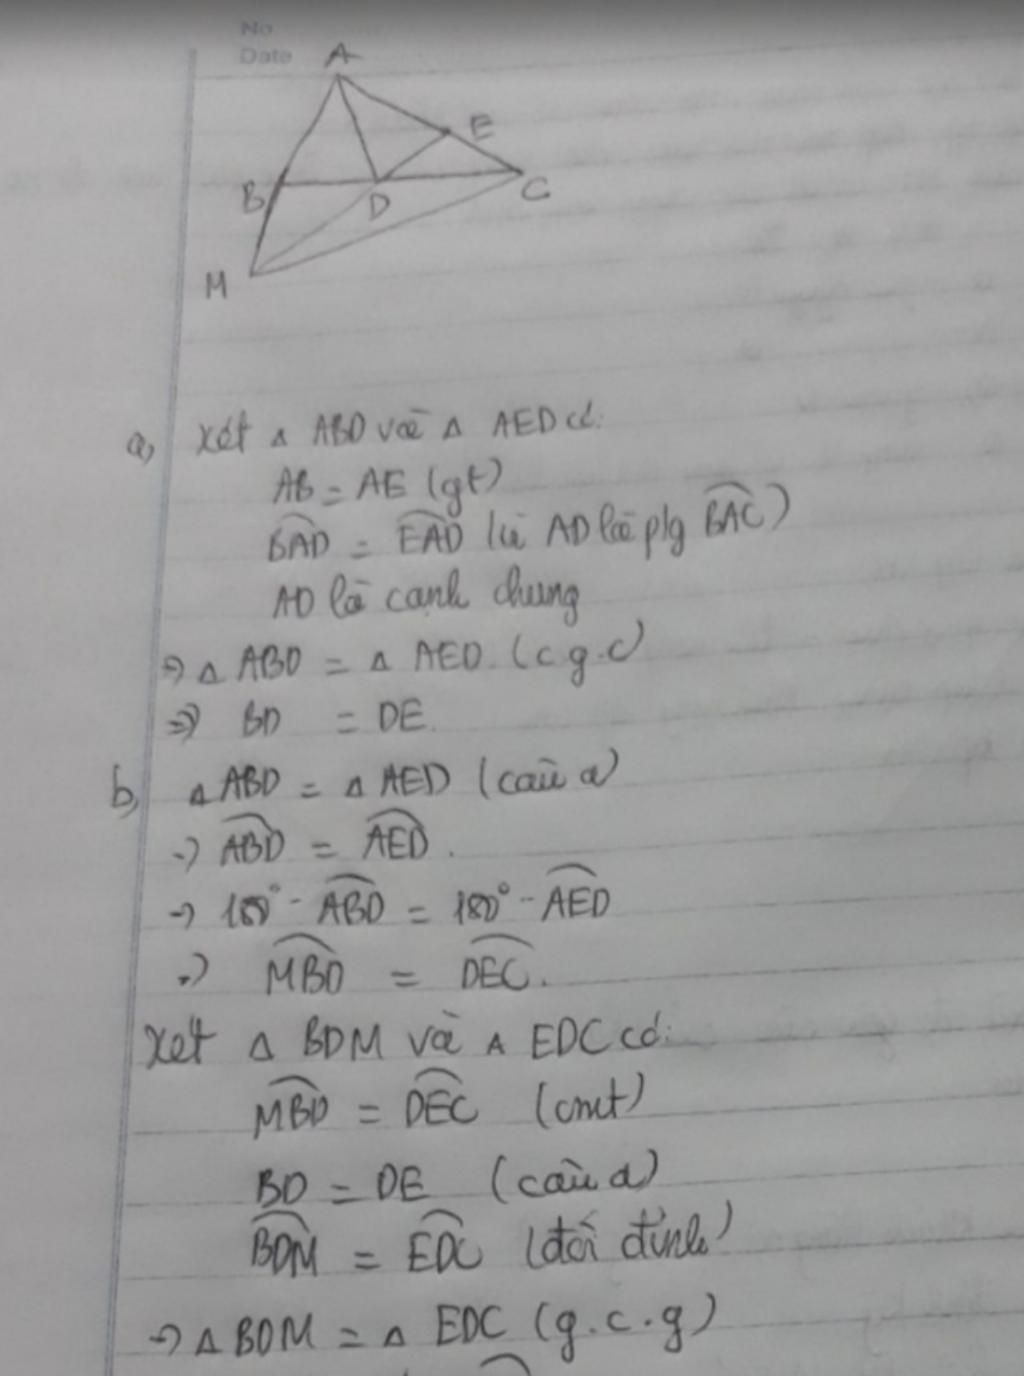 No
Date
A
E
B
D
C
M
a, Xét Δ ABD và Δ AED có:
AB = AE (gt)
BAD = EAD (vì AD là p/g BAC)
AD là cạnh chung
=> Δ ABD = Δ AED (c.g.c)
=> BD = DE.
b, Δ ABD = Δ AED (câu a)
=> ABD = AED.
=> 180° - ABD = 180° - AED
=> MBD = DEC.
Xét Δ BDM và Δ EDC có:
MBD = DEC (cmt)
BD = DE (câu a)
BDM = EDC (đối đỉnh)
=> Δ BDM = Δ EDC (g.c.g)